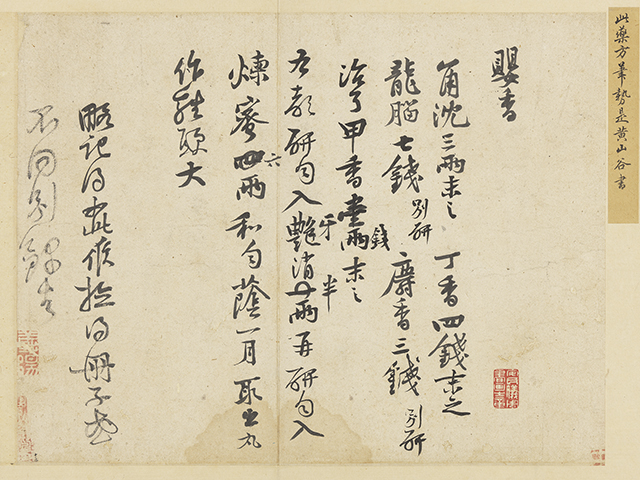 此藥方筆勢是黃山谷書
嬰香
角沈三兩末之 丁香四錢末之
龍腦七錢別研 麝香三錢別研
治了甲香壹兩錢末之
右都研勻入艷牙消半兩再研勻入
煉蜜四六兩和勻蔭一月取出丸
作雞頭大
略記得如此候檢得冊子或
不同別錄去